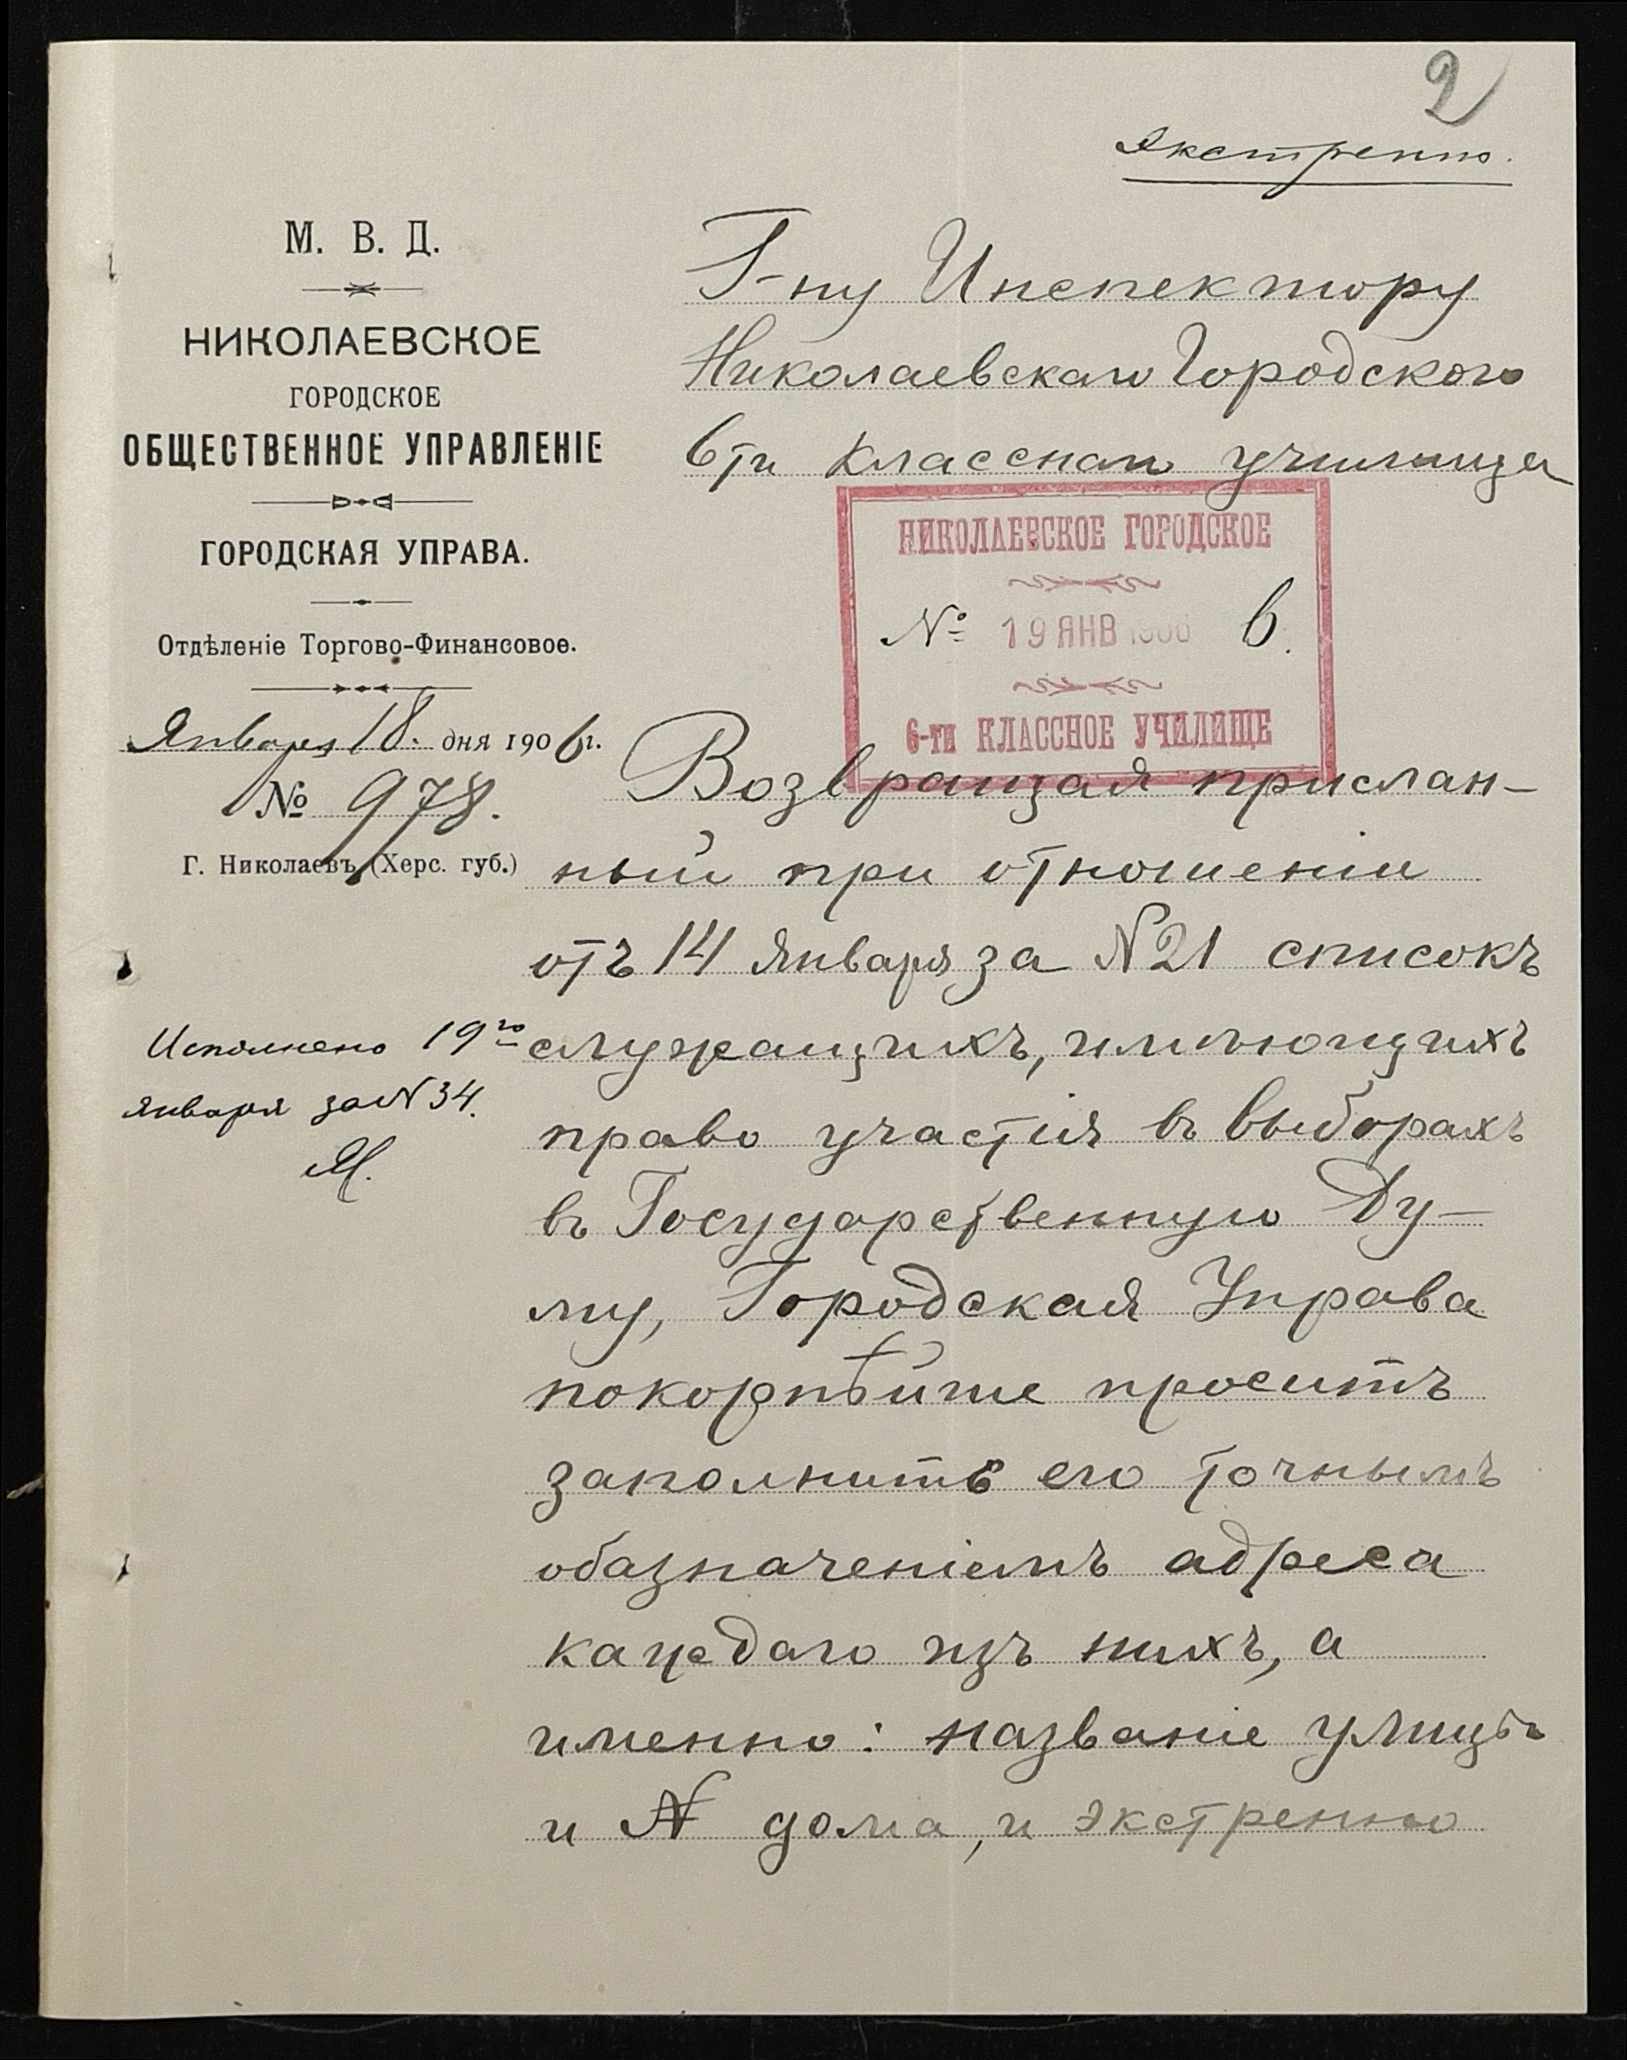 2
Экстренно.
М. В. Д.
НИКОЛАЕВСКОЕ
ГОРОДСКОЕ
ОБЩЕСТВЕННОЕ УПРАВЛЕНІЕ
ГОРОДСКАЯ УПРАВА.
Отдѣленіе Торгово-Финансовое.
Января 18. дня 1906 г.
№ 978.
Г. Николаевъ, (Херс. губ.)
Г-ну Инспектору
Николаевскаго Городского
6ти класснаго училища
НИКОЛАЕВСКОЕ ГОРОДСКОЕ
№ 19 ЯНВ 1906 6.
6-ти КЛАССНОЕ УЧИЛИЩЕ
Возвращая прислан-
ный при отношеніи
отъ 14 Января за N 21 списокъ
служащихъ, имѣющихъ
право участія въ выборахъ
въ Государственную Ду-
му, Городская Управа
покорнѣйше проситъ
заполнить его точнымъ
обазначеніемъ адреса
каждаго изъ нихъ, а
именно: названіе улицы
и N дома, и экстренно
Исполнено 19го
января за N 34.